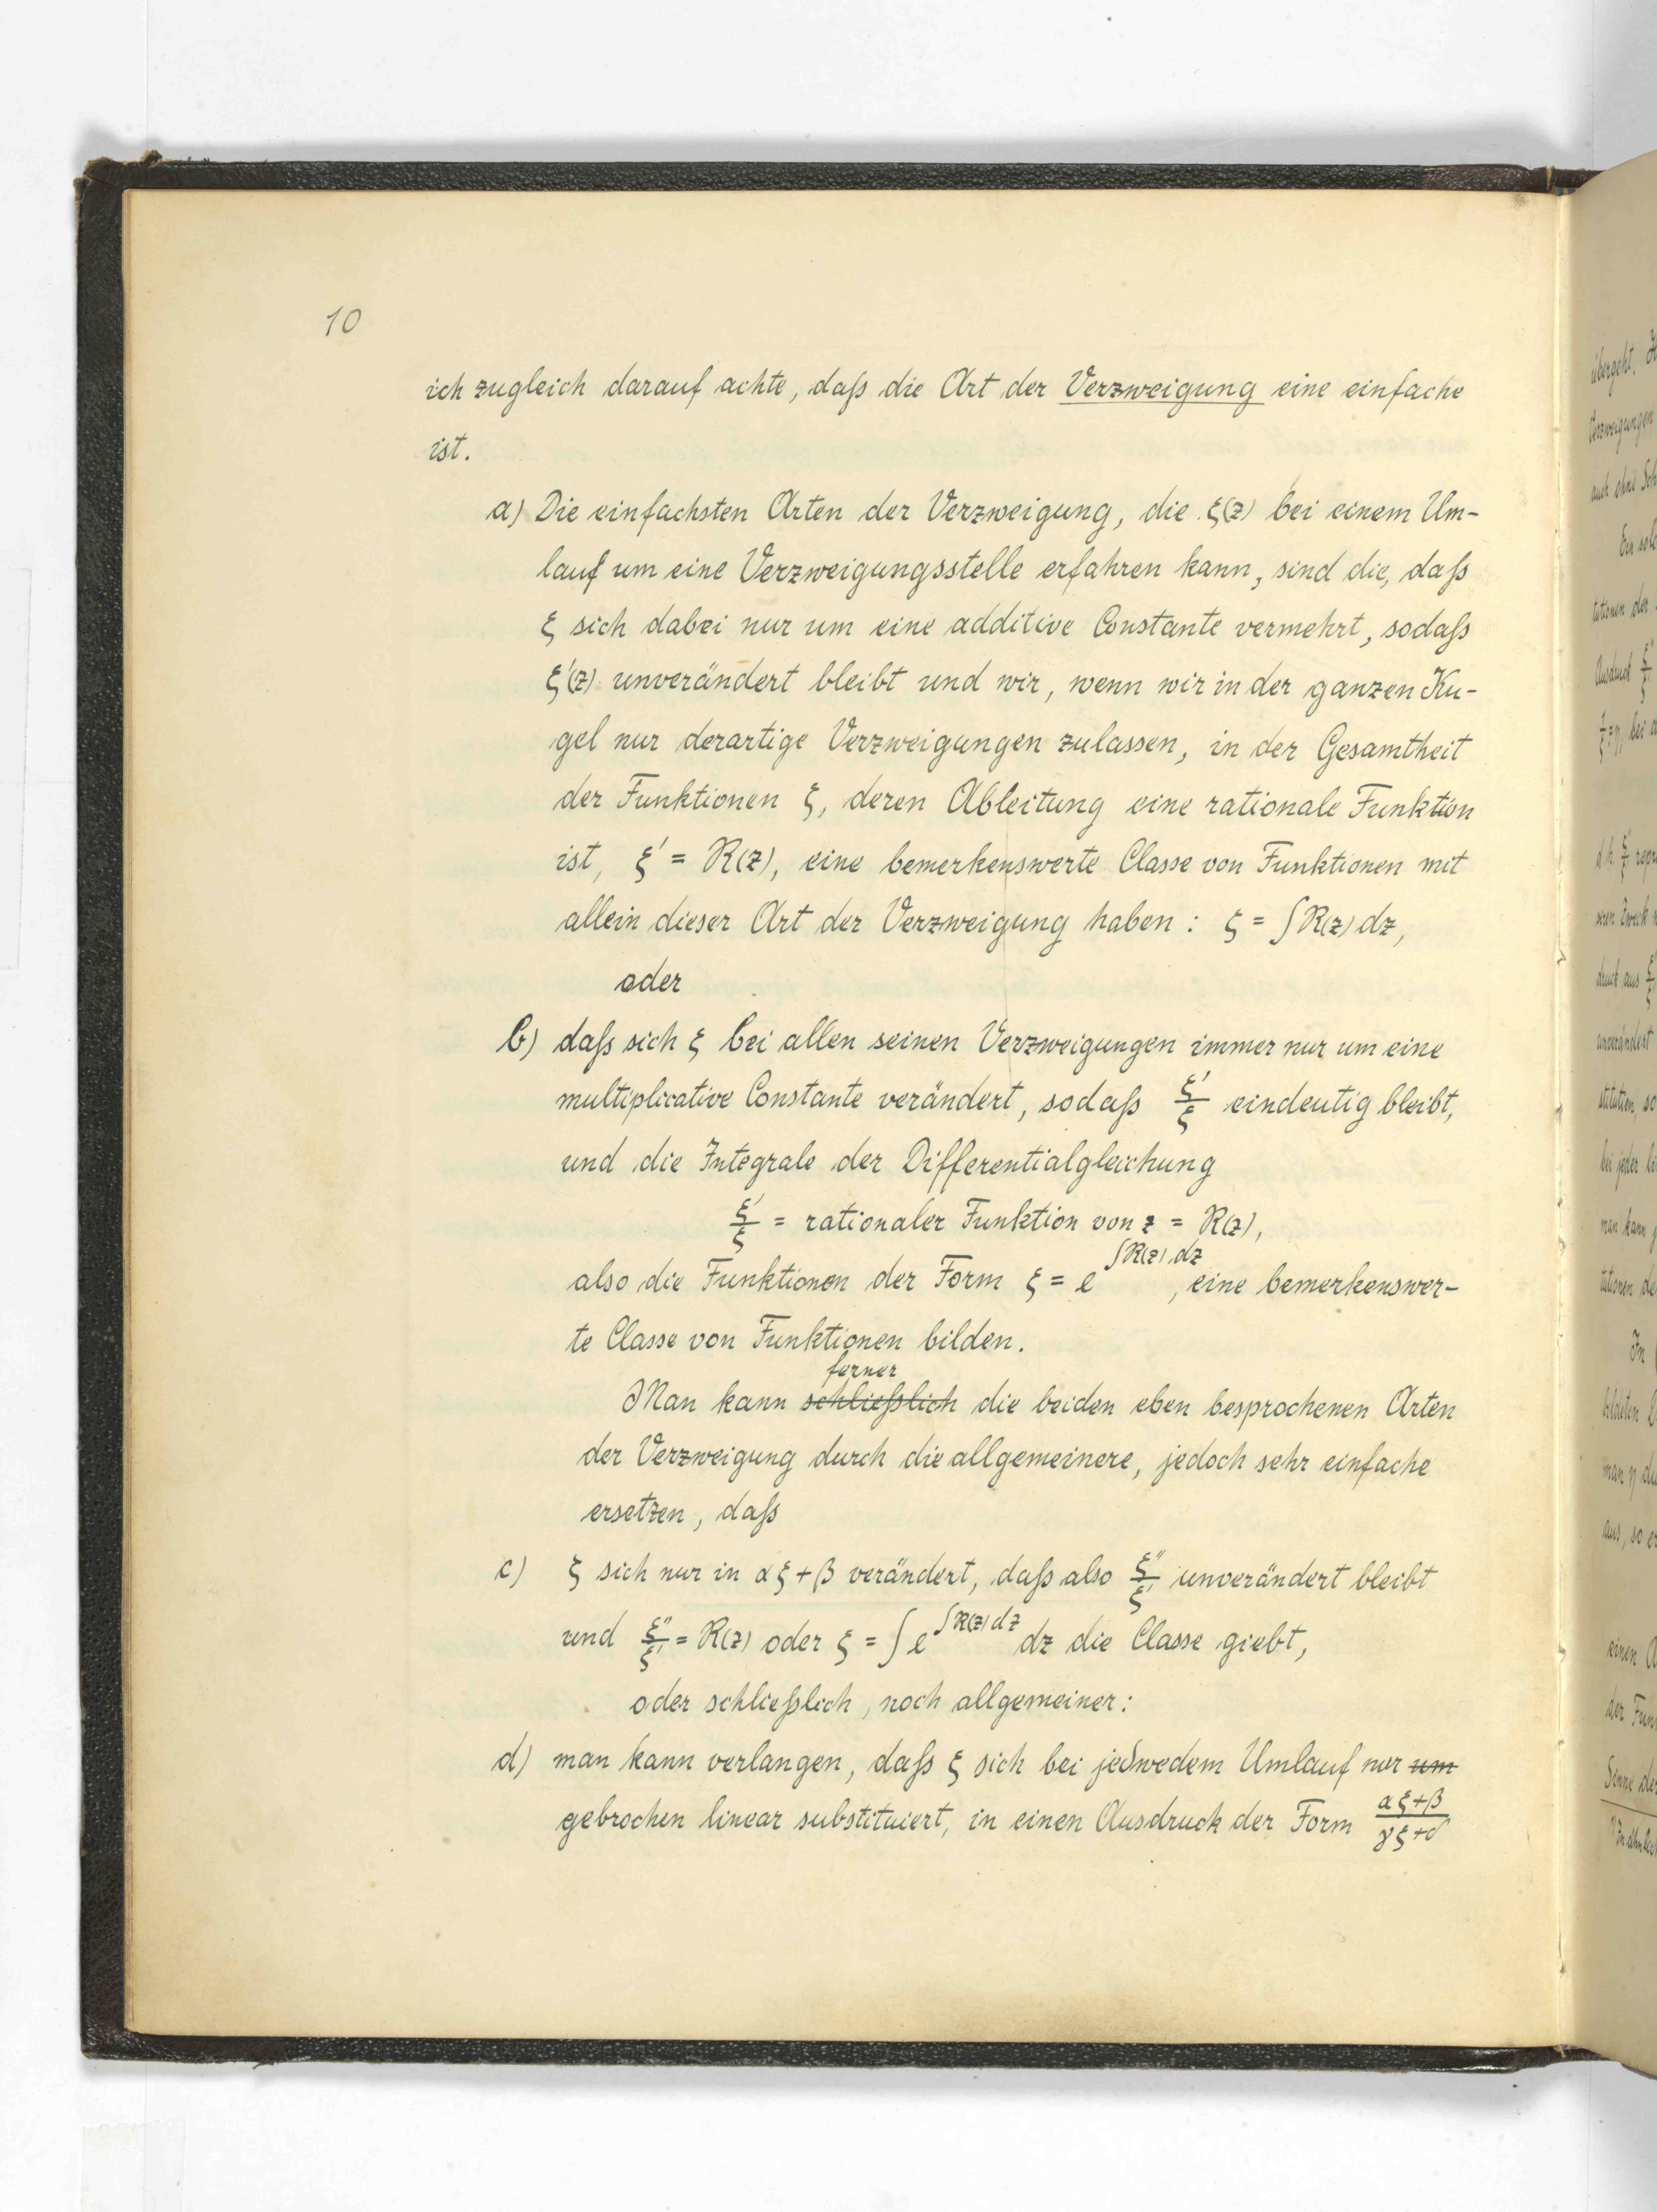 10
ich zugleich darauf achte, daß die Art der Verzweigung eine einfache
ist.
a) Die einfachsten Arten der Verzweigung, die ξ(z) bei einem Um-
lauf um eine Verzweigungsstelle erfahren kann, sind die, daß
ξ sich dabei nur um eine additive Constante vermehrt, sodaß
ξ'(z) unverändert bleibt und wir, wenn wir in der ganzen Ku-
gel nur derartige Verzweigungen zulassen, in der Gesamtheit
der Funktionen ξ, deren Ableitung eine rationale Funktion
ist, ξ' = R(z), eine bemerkenswerte Classe von Funktionen mit
allein dieser Art der Verzweigung haben: ξ = ∫R(z) dz,
oder
b) daß sich ξ bei allen seinen Verzweigungen immer nur um eine
multiplicative Constante verändert, sodaß ξ'/ξ eindeutig bleibt,
und die Integrale der Differentialgleichung
ξ'/ξ = rationaler Funktion von z = R(z),
also die Funktionen der Form ξ = e^∫R(z) dz, eine bemerkenswer-
te Classe von Funktionen bilden.
ferner
Man kann schließlich die beiden eben besprochenen Arten
der Verzweigung durch die allgemeinere, jedoch sehr einfache
ersetzen, daß
c) ξ sich nur in αξ+β verändert, daß also ξ''/ξ' unverändert bleibt
und ξ''/ξ' = R(z) oder ξ = ∫e^∫R(z) dz dz die Classe giebt,
oder schließlich, noch allgemeiner:
d) man kann verlangen, daß ξ sich bei jedwedem Umlauf nur um
gebrochen linear substituiert, in einen Ausdruck der Form (αξ+β)/(γξ+δ)